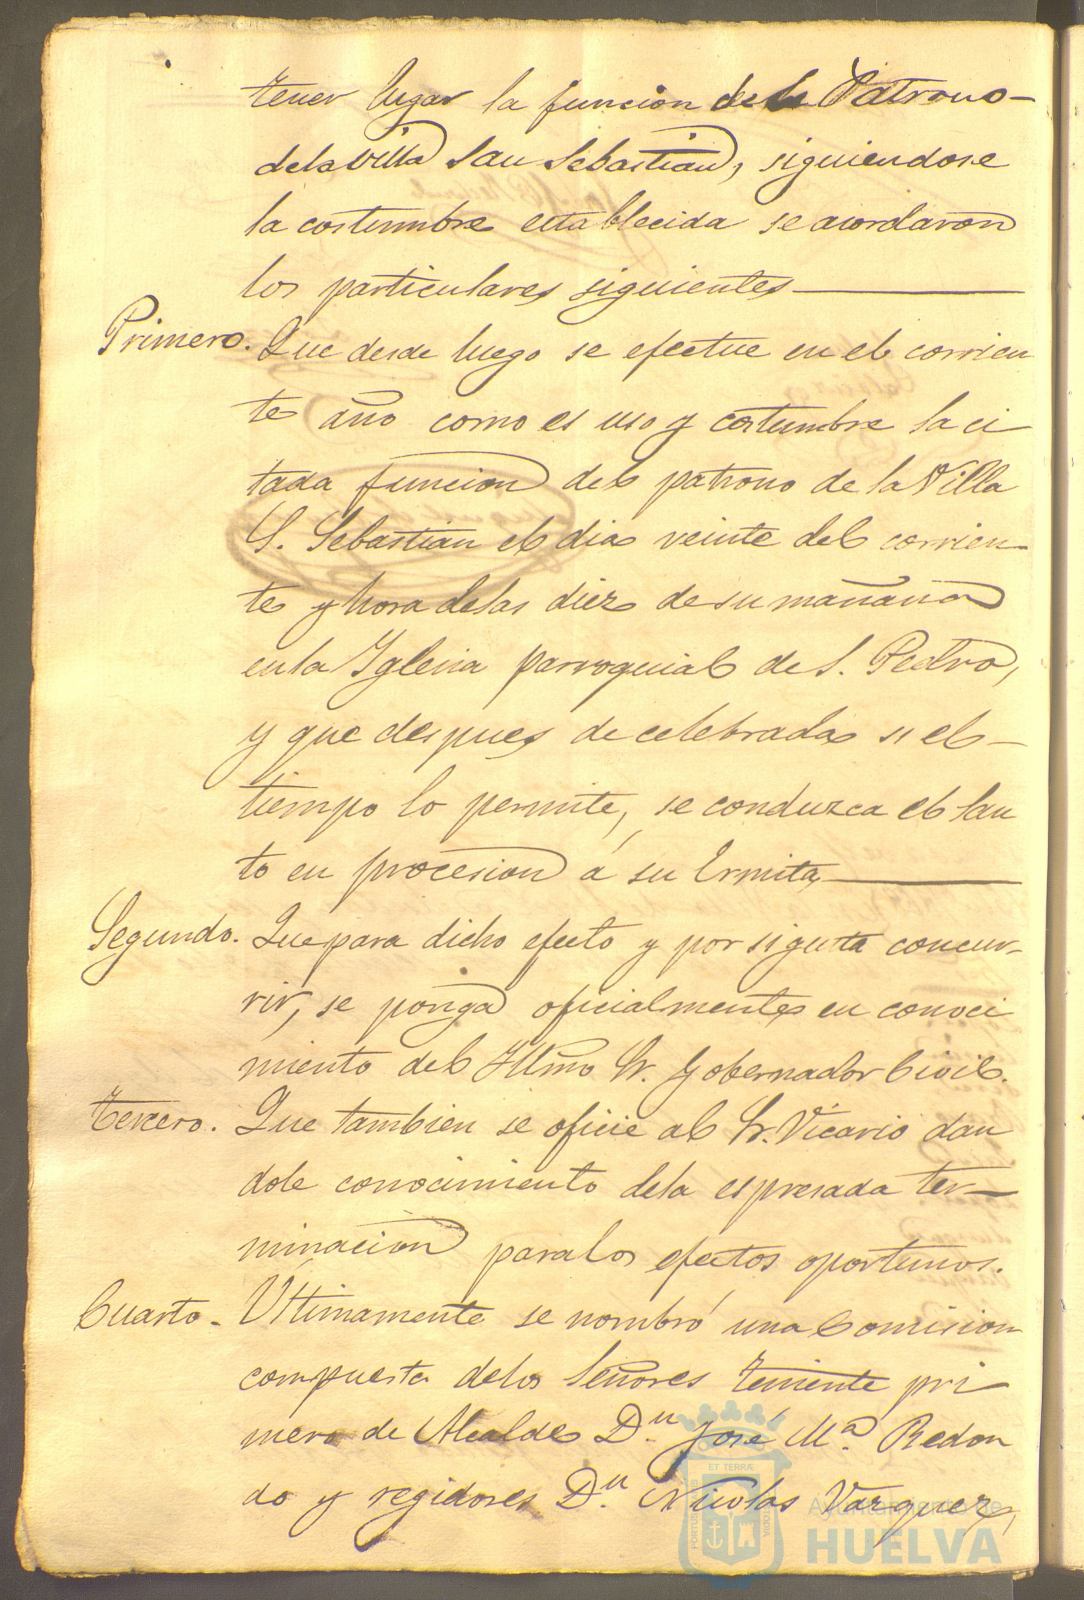 tener lugar la funcion del Patrono
dela Villa San Sebastian, siguiendose
la costumbre establecida se acordaron
los particulares siguientes
Primero. Que desde luego se efectue en el corrien
te año como es uso y costumbre la ci
tada funcion del patrono de la Villa
S. Sebastian el dia veinte del corrien
te y hora delas diez de su mañana
en la Yglesia parroquial de S. Pedro,
y que despues de celebrada si el
tiempo lo permite, se conduzca el San
to en procesion á su Ermita
Segundo. Que para dicho efecto y por si gusta concur-
rir, se ponga oficialmente en conoci
miento del Yllmo Sr. Gobernador Civil.
Tercero. Que tambien se oficie al Sr. Vicario dan
dole conocimiento dela espresada ter-
minacion para los efectos oportunos.
Cuarto. Ultimamente se nombró una Comision
compuesta delos Señores teniente pri
mero de Alcalde Dn José Mª. Redon
do y regidores Dn Nicolas Vazquez,
ET TERRÆ
Ayuntamiento de
HUELVA